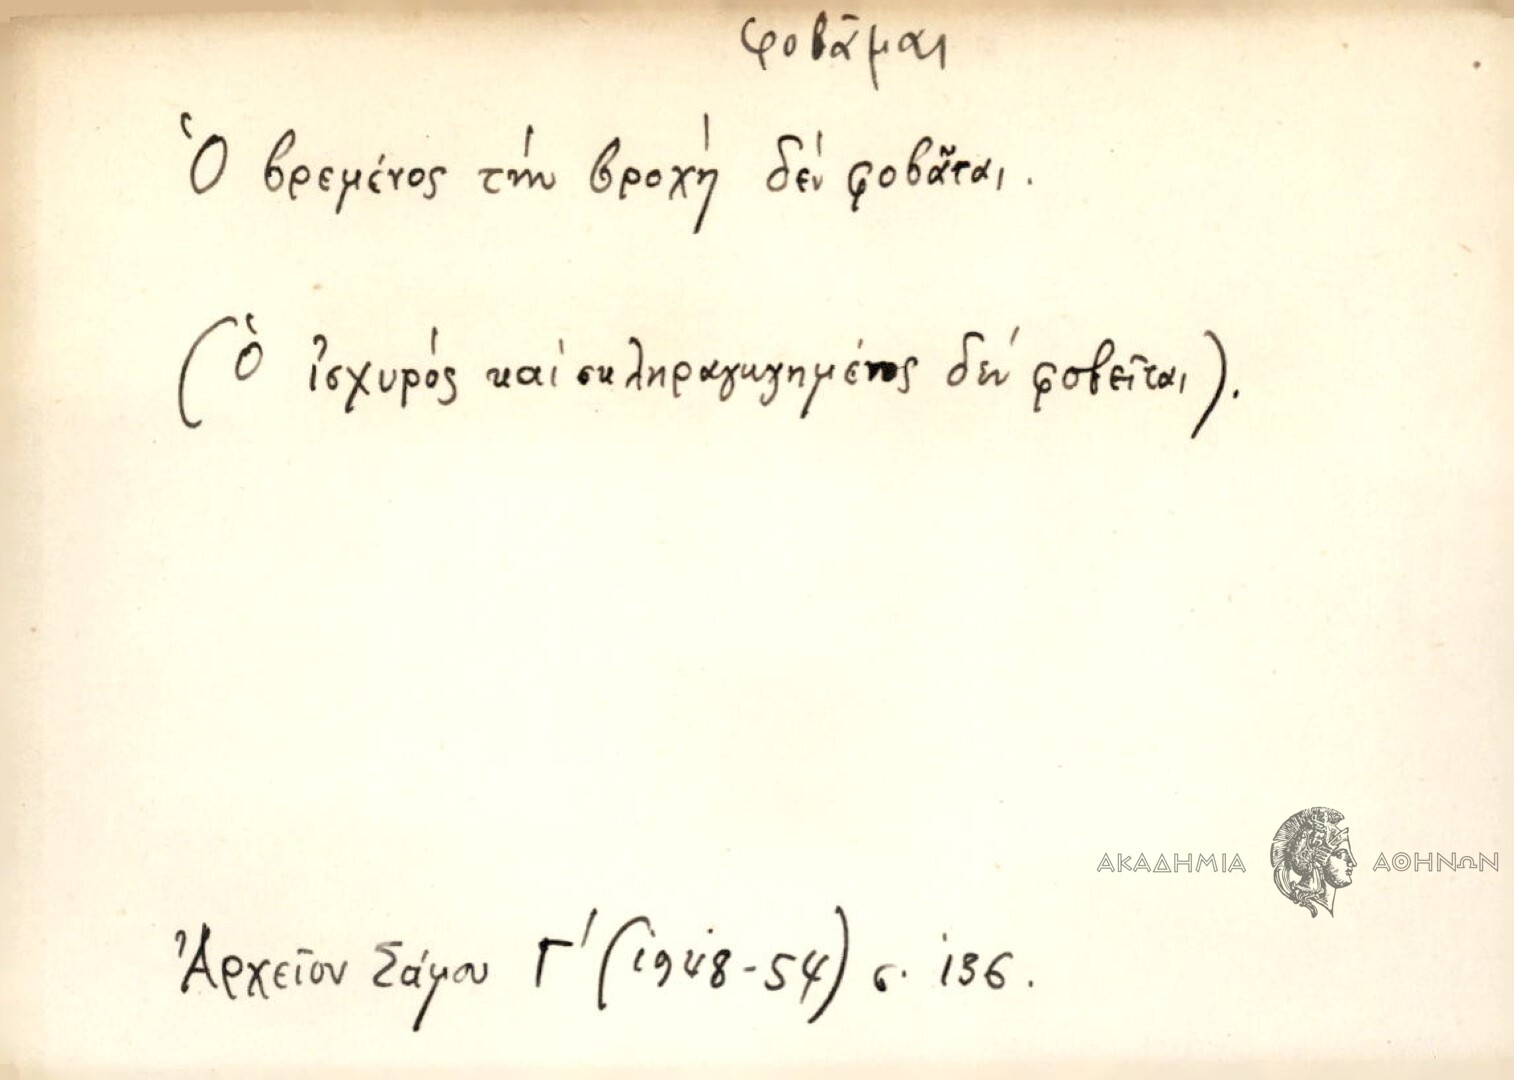 φοβᾶμαι
Ὁ βρεμένος τήν βροχή δέν φοβᾶται.
(Ὁ ἰσχυρός καί σκληραγωγημένος δέν φοβεῖται).
ΑΚΑΔΗΜΙΑ ΑΘΗΝΩΝ
Ἀρχεῖον Σάμου Γ' (1948-54) σ. 136.